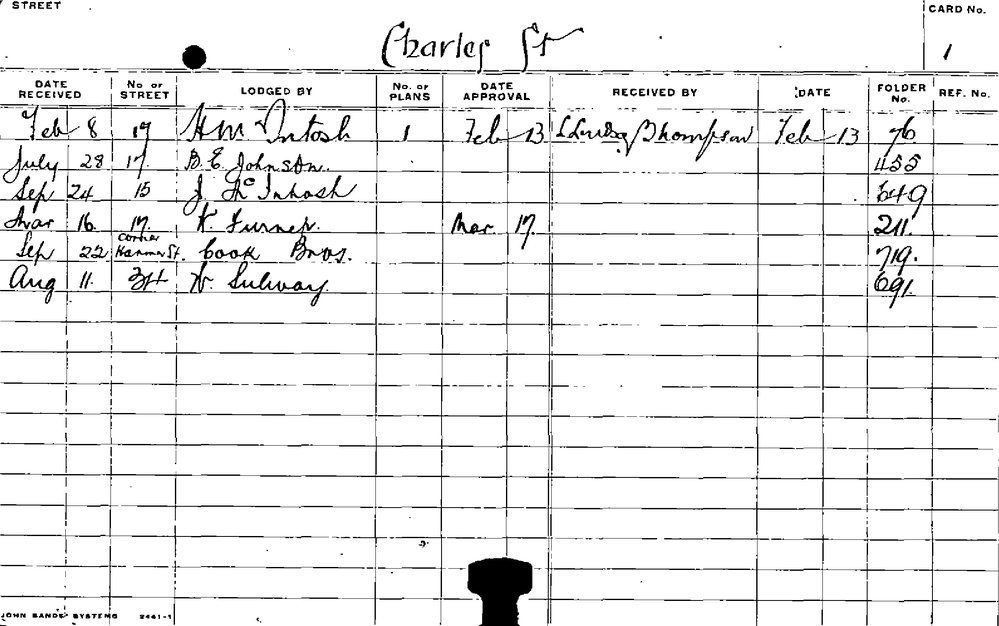 STREET
CARD No.
Charles St
1
DATE RECEIVED No. OF STREET LODGED BY No. OF PLANS DATE APPROVAL RECEIVED BY DATE FOLDER No. REF. No.
Feb 8 17 H McIntosh 1 Feb 13 Thompson Feb 13 76
July 28 17. B. E. Johnson. 455
Sep 24 15 J. McIntosh 649
Mar 16. 17. Turner. Mar. 17. 211.
Sep 22 corner Hanmer St. Cook Bros. 719.
Aug 11. 34 691.
JOHN SANDS SYSTEMS 2461-1